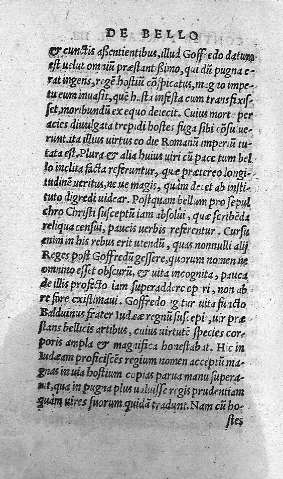 DE BELLO
& cunctis assentientibus, illud Goffredo datum
est uelut omniū præstantissimo, qui dū pugna e-
rat ingens, regē hostiū cōspicatus, magno impe-
tu eum inuasit, quē hasta infesta cum transfixis-
set, moribundū ex equo deiecit. Cuius morte per
acies diuulgata trepidi hostes fuga sibi cōsuluе
runt. ita illius uirtus eo die Romanū imperiū tu-
tata est. Plura & alia huius uiri cū pace tum bel
lo inclita facta referuntur, quæ prætereo longi-
tudinē ueritus, ne ue magis, quàm decet ab insti-
tuto digredi uidear. Postquam bellum pro sepul
chro Christi susceptū iam absolui, quæ scribēda
reliqua censui, paucis uerbis referentur. Cursu
enim in his rebus erit utendū, quas nonnulli alij
Reges post Goffredū gessere, quorum nomen ne
omnino esset obscurū, & uita incognita, pauca
de illis profecto iam superaddere cœpi, non ab
re fore existimaui. Goffredo igitur uita functo
Balduinus frater Iudææ regnū suscepi, uir præ
stans bellicis artibus, cuius uirtutē species cor-
poris ampla & magnifica honestabat. Hic in
Iudæam proficiscēs regium nomen acceptū ma-
gnas in uia hostium copias parua manu supera-
uit, qua in pugna plus ualuisse regis prudentiam
quàm uires suorum quidā tradunt. Nam cū ho-
stes